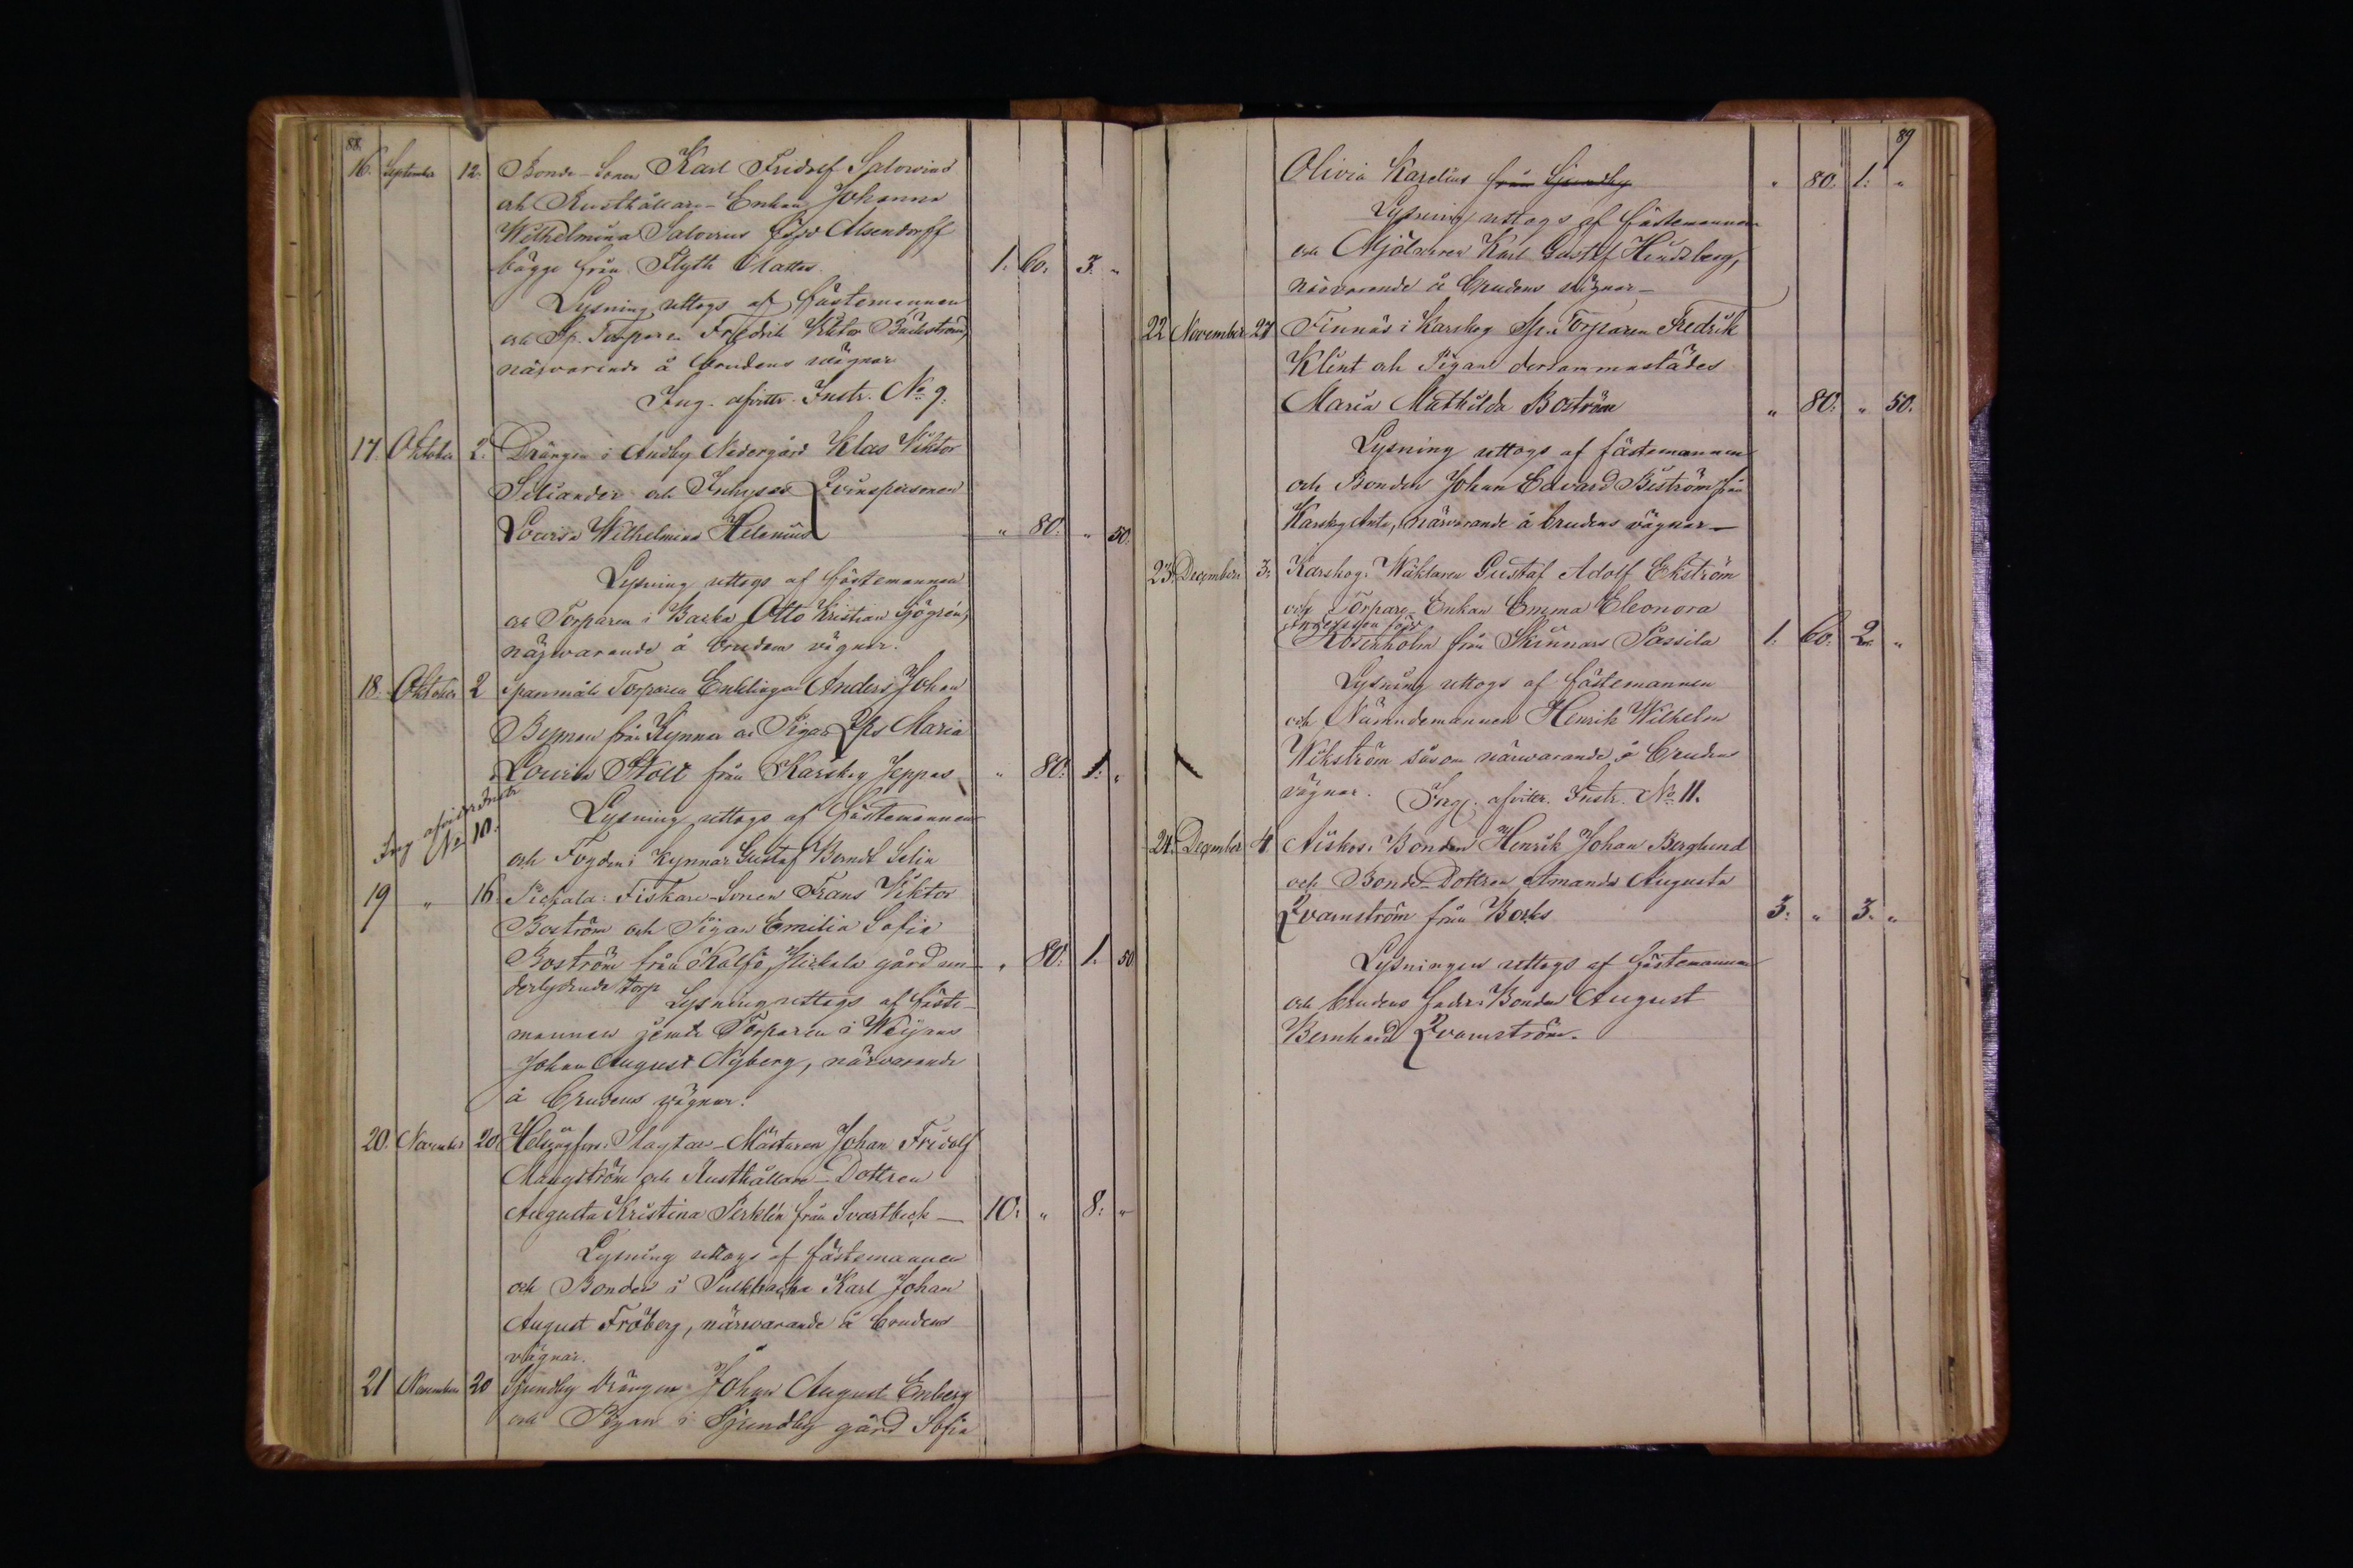 88.
16. September 12. Bonde-Sonen Karl Fridolf Salovius
och Rusthållare-Enkan Johanna
Wilhelmina Salovius född Alsendorff
bägge från Flyth Mattas 1. 60. 3. "
Lysning uttogs af fästemannen
och Sp. Torparen Fredrik Viktor Bäckström,
närvarande å brudens wägnar
Ing. afvittr. Instr. No 9.
17. Oktober 2. Drängen i Andby Nedergård Klas Viktor
Selander och Inhyses Qvinspersonen
Lovisa Wilhelmina Helenius " 80. " 50.
Lysning uttogs af fästemannen
och Torparen i Backa Otto Kristian Sjögrén,
närwarande å brudens vägnar.
18. Oktober 2 Spanmåls Torparen Enklingen Anders Johan
Byman från Kynnar och Pigan Eva Maria
Lovisa Stolt från Karskog Jeppas " 80. 1. "
Ing afvittr Instr
No 10.
Lysning uttogs af fästemannen
och Fogden i Kynnar Gustaf Berndt Selin
19 " 16 Pickala: Fiskare-Sonen Frans Viktor
Boström och Pigan Emilia Sofia
Boström från Kalfö, Pickala gård un- " 80. 1. 50
derlydande torp Lysning uttogs af fäste-
mannen jemte Torparen i Weijans
Johan August Nyberg, närvarande
å brudens vägnar.
20. November 20. Helsingfors: Slagtar-Mästaren Johan Fridolf
Mangström och Rusthållare-Dottren
Augusta Kristina Perklén från Svartbeck — 10. " 8. "
Lysning uttogs af fästemannen
och Bonden i Purkbacka Karl Johan
August Fröberg, närwarande å brudens
vägnar.
21 November 20 Sjundby Drängen Johan August Enberg
och Pigan i Sjundby gård Sofia
89
Olivia Karelius från Sjundby " 80. 1. "
Lysning uttogs af fästemannen
och Mjölnaren Karl Gustaf Hindsberg,
närvarande å brudens vägnar—
22 November 27 Finnäs i Karskog Sp. Torparen Fredrik
Klint och Pigan dersammastädes
Maria Mathilda Boström " 80. " 50.
Lysning uttogs af fästemannen
och Bonden Johan Edvard Biström från
Karskog Ants, närvarande å brudens vägnar—
23. December 3. Karskog: Wäktaren Gustaf Adolf Ekström
och Torpare-Enkan Emma Eleonora
född
Rosenholm från Skinnars Passila 1. 60. 2. "
Lysning uttogs af fästemannen
och Nämndemannen Henrik Wilhelm
Wikström såsom närwarande å brudens
vägnar. Ing. afvittr. Instr. No 11.
24. December 4 Niskas: Bonden Henrik Johan Berglund
och Bonde-Dottren Amanda Augusta
Qvarnström från Backs 3. " 3. "
Lysningen uttogs af fästemannen
och brudens fader: Bonden August
Bernhard Qvarnström.